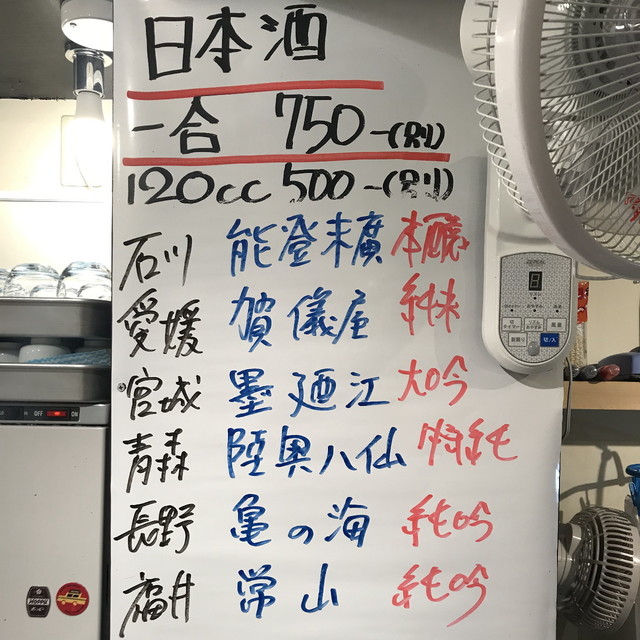 日本酒
一合 750-(別)
120cc 500-(別)
石川 能登末廣 本醸
愛媛 賀儀屋 純米
宮城 墨廼江 大吟
青森 陸奥八仙 特純
長野 亀の海 純吟
福井 常山 純吟
OFF ON
切/入